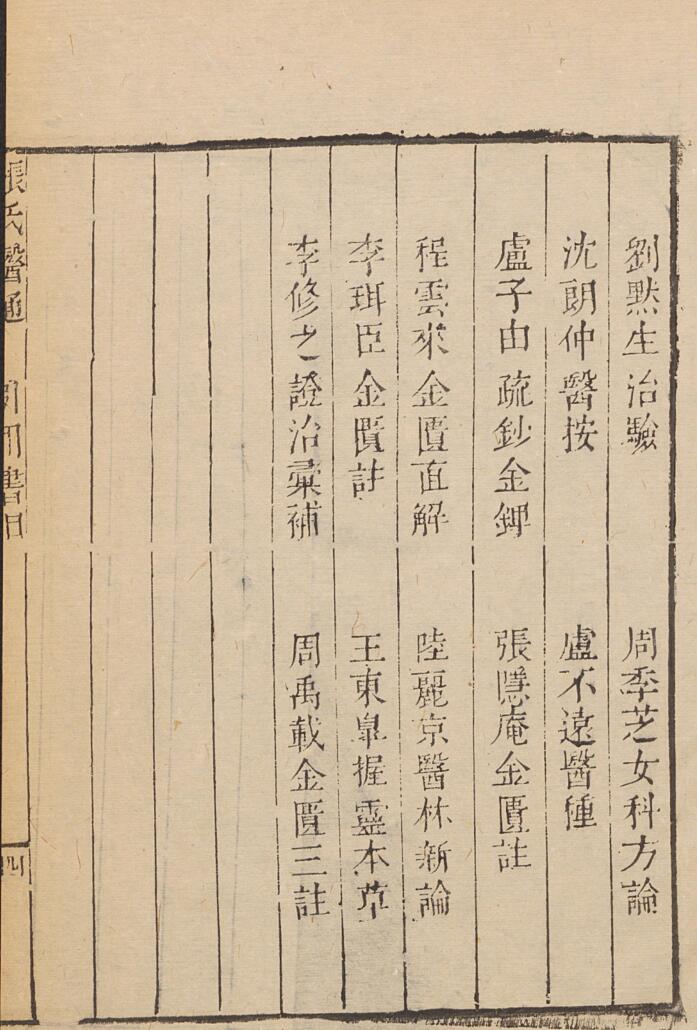 劉默生治驗　周季芝女科方論
沈朗仲醫按　盧不遠醫種
盧子由疏鈔金錍　張隱庵金匱註
程雲來金匱直解　陸麗京醫林新論
李珥臣金匱註　王東皐握靈本草
李修之證治彙補　周禹載金匱三註
張氏醫通　引用書目　四